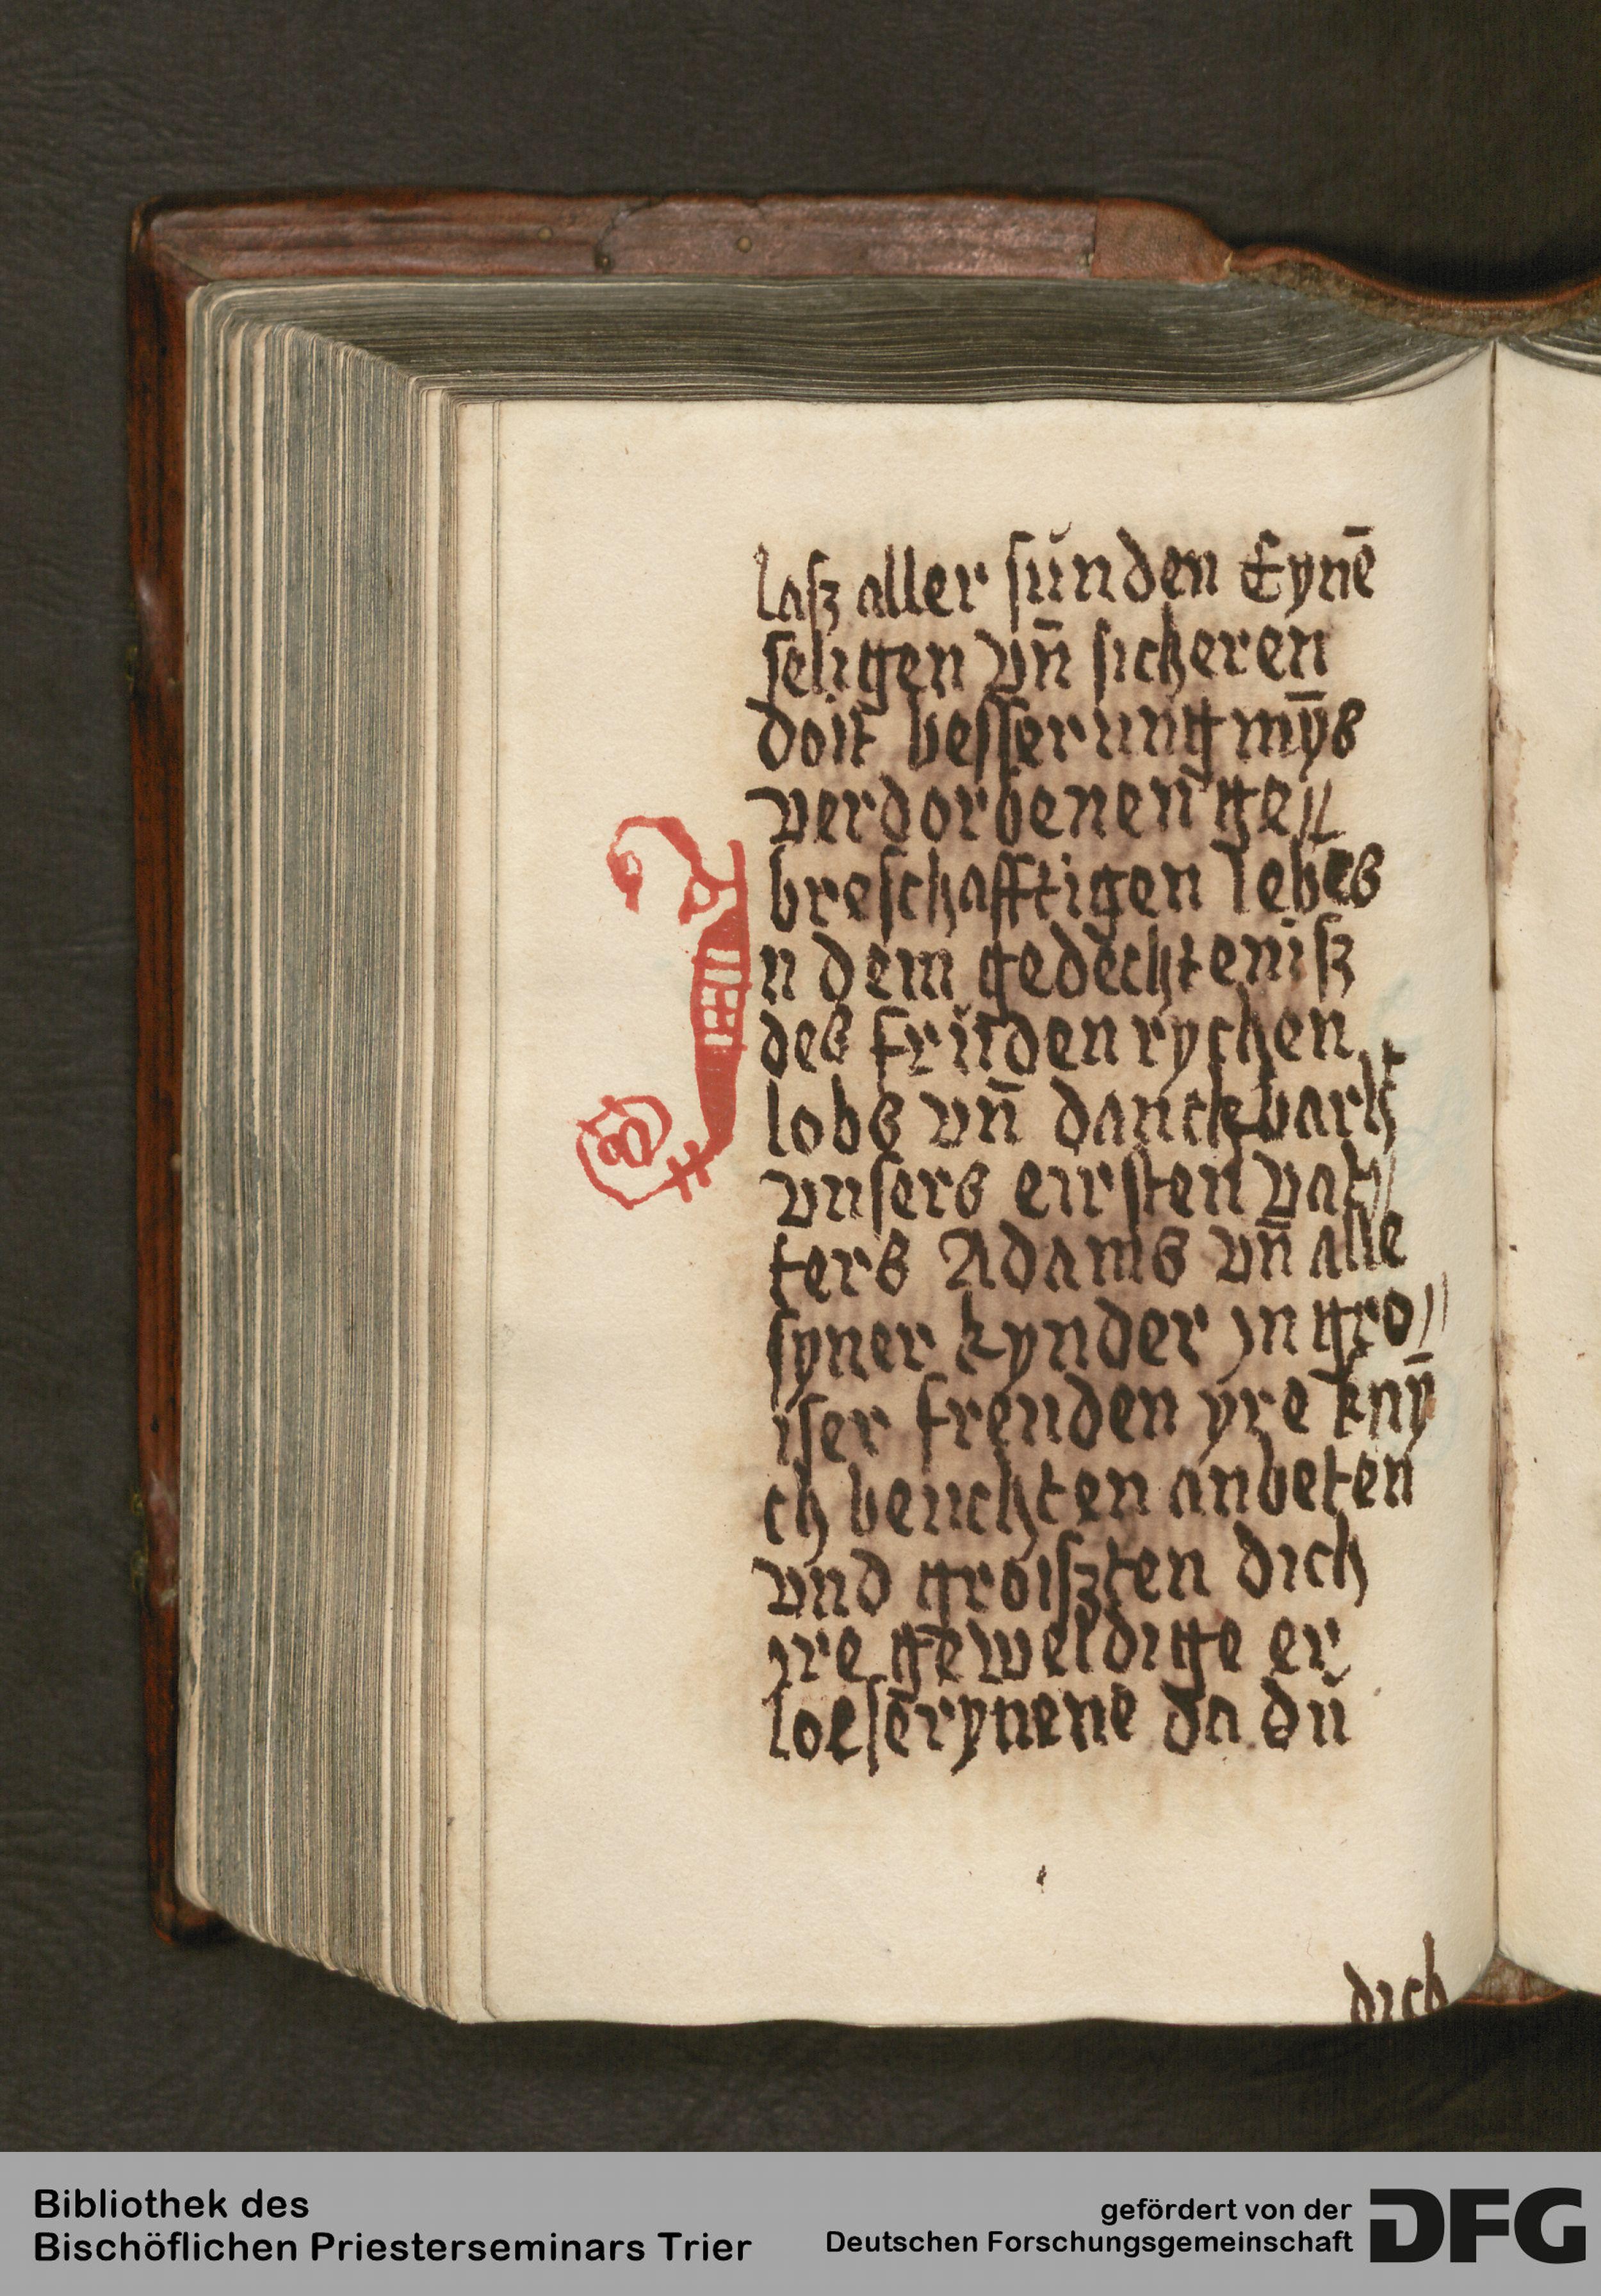 laſz aller ſunden Eynē
ſeligen vn̄ ſicheren
doit beſſerung mȳs
verdorbenen ge//
breſchafftigen lebēs
In dem gedechteniſz
des frúden rychen
lobs vn̄ danckbark
vnſers eirſten vat//
ters Adams vn̄ alle
ſyner kynder jn gro//
iſer freuden yre knȳ
ch beuchten anbeten
vnd groiſzten dich
jre geweldige er
loeſerynene da du
dich
Bibliothek des
Bischöflichen Priesterseminars Trier
gefördert von der
Deutschen Forschungsgemeinschaft
DFG